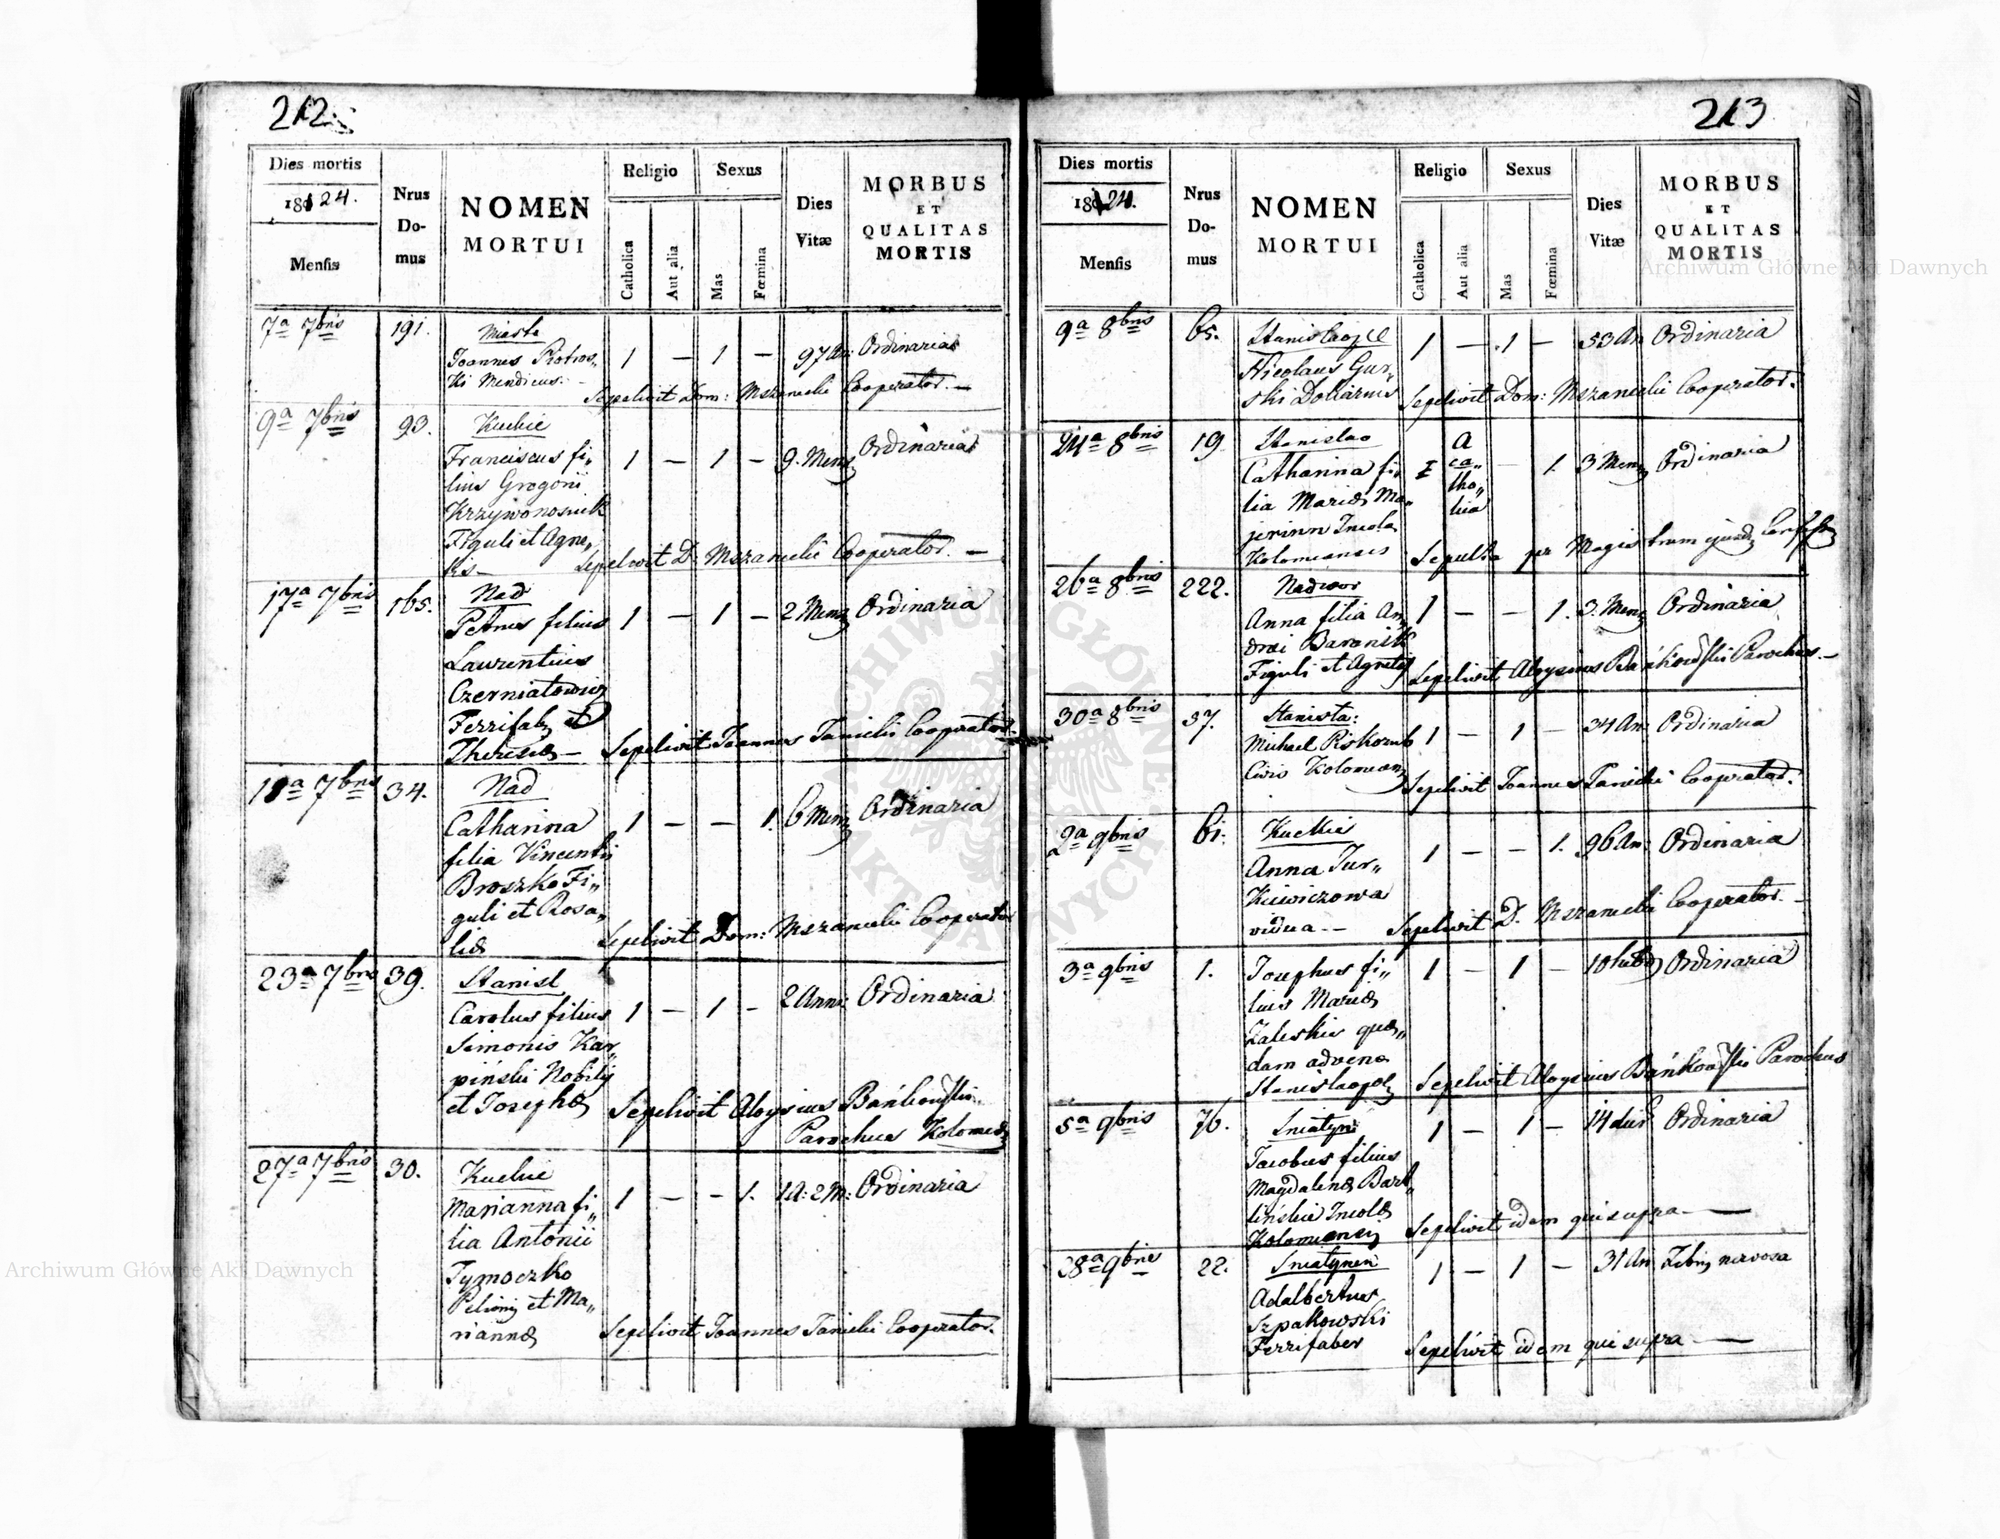 212.
Dies mortis
1824.
Mensis
Nrus
Do-
mus
NOMEN
MORTUI
Religio
Catholica
Aut alia
Sexus
Mas
Fœmina
Dies
Vitæ
MORBUS
ET
QUALITAS
MORTIS
7a 7bris
191.
Miasto
Joannes
Ki Mendicus.
1 — 1 —
97 An:
Ordinaria
Sepelivit Dom: Mszanecki Cooperator. —
9a 7bris
93.
Kuckie
Franciscus fi„
lius Gregorii
Krzywonosiuk
Figuli et Agne„
tis —
1 — 1 —
9. Mens
Ordinaria
Sepelivit D. Mszanecki Cooperator. —
17a 7bris
165.
Nad
Petrus filius
Laurentius
Czerniatowicz
Ferrifab et
Theresiæ —
1 — 1 —
2 Mens
Ordinaria
Sepelivit Joannes Janicki Cooperator.
18a 7bris
34.
Nad
Catharina
filia Vincentii
Broszko Fi„
guli et Rosa„
liæ
1 — — 1.
6 Mens
Ordinaria
Sepelivit Dom: Mszanecki Cooperator
23a 7bris
39.
Stanisl
Carolus filius
Simonis Kar„
piński Nobilis
et Josephæ
1 — 1 —
2 Ann:
Ordinaria
Sepelivit Aloysius Bańkowski
Parochus Kolomeæ
27a 7bris
30.
Kuckie
Marianna fi„
lia Antonii
Tymoczko
et Ma„
riannæ
1 — — 1.
1 A: 2 M:
Ordinaria
Sepelivit Joannes Janicki Cooperator.
213
Dies mortis
1824.
Mensis
Nrus
Do-
mus
NOMEN
MORTUI
Religio
Catholica
Aut alia
Sexus
Mas
Fœmina
Dies
Vitæ
MORBUS
ET
QUALITAS
MORTIS
9a 8bris
65.
Nicolaus Gur„
ski Doliarius
1 — 1 —
53 An
Ordinaria
Sepelivit Dom: Mszanecki Cooperator.
24a 8bris
19
Stanislao
Catharina fi„
lia Mariæ Ma„
jerinn Incola
Kolomeensis
1
A
ca„
tho„
lica
— 1.
3 Mens
Ordinaria
Sepulta per Magistrum
26a 8bris
222.
Nadwor
Anna filia An„
drei Baraniuk
Figuli et Agnetis
1 — — 1.
3. Mens
Ordinaria
Sepelivit Aloysius Bańkowski Parochus. —
30a 8bris
37.
Stanisla:
Michael Piskozub
Civis Kolomeen
1 — 1 —
34 An
Ordinaria
Sepelivit Joannes Janicki Cooperator.
2a 9bris
61.
Kuckie
Anna Jur„
Kiewiczowa
vidua —
1 — — 1.
96 An:
Ordinaria
Sepelivit D. Mszanecki Cooperator. —
3a 9bris
1.
Josephus fi„
lius Mariæ
Zaleskie quæ„
dam advenæ
Stanislaopol
1 — 1 —
Ordinaria
Sepelivit Aloysius Bańkowski Parochus
5a 9bris
76.
Sniatyn
Jacobus filius
Magdalenæ Bart„
lińskie Incolæ
Kolomeensis
1 — 1 —
14 dier
Ordinaria
Sepelivit idem qui supra —
28a 9bris
22.
Sniatynen
Adalbertus
Szpakowski
Ferrifaber
1 — 1 —
31 An
Febris nervosa
Sepelivit idem qui supra —
Archiwum Główne Akt Dawnych
Archiwum Główne Akt Dawnych
ARCHIWUM GŁÓWNE AKT DAWNYCH